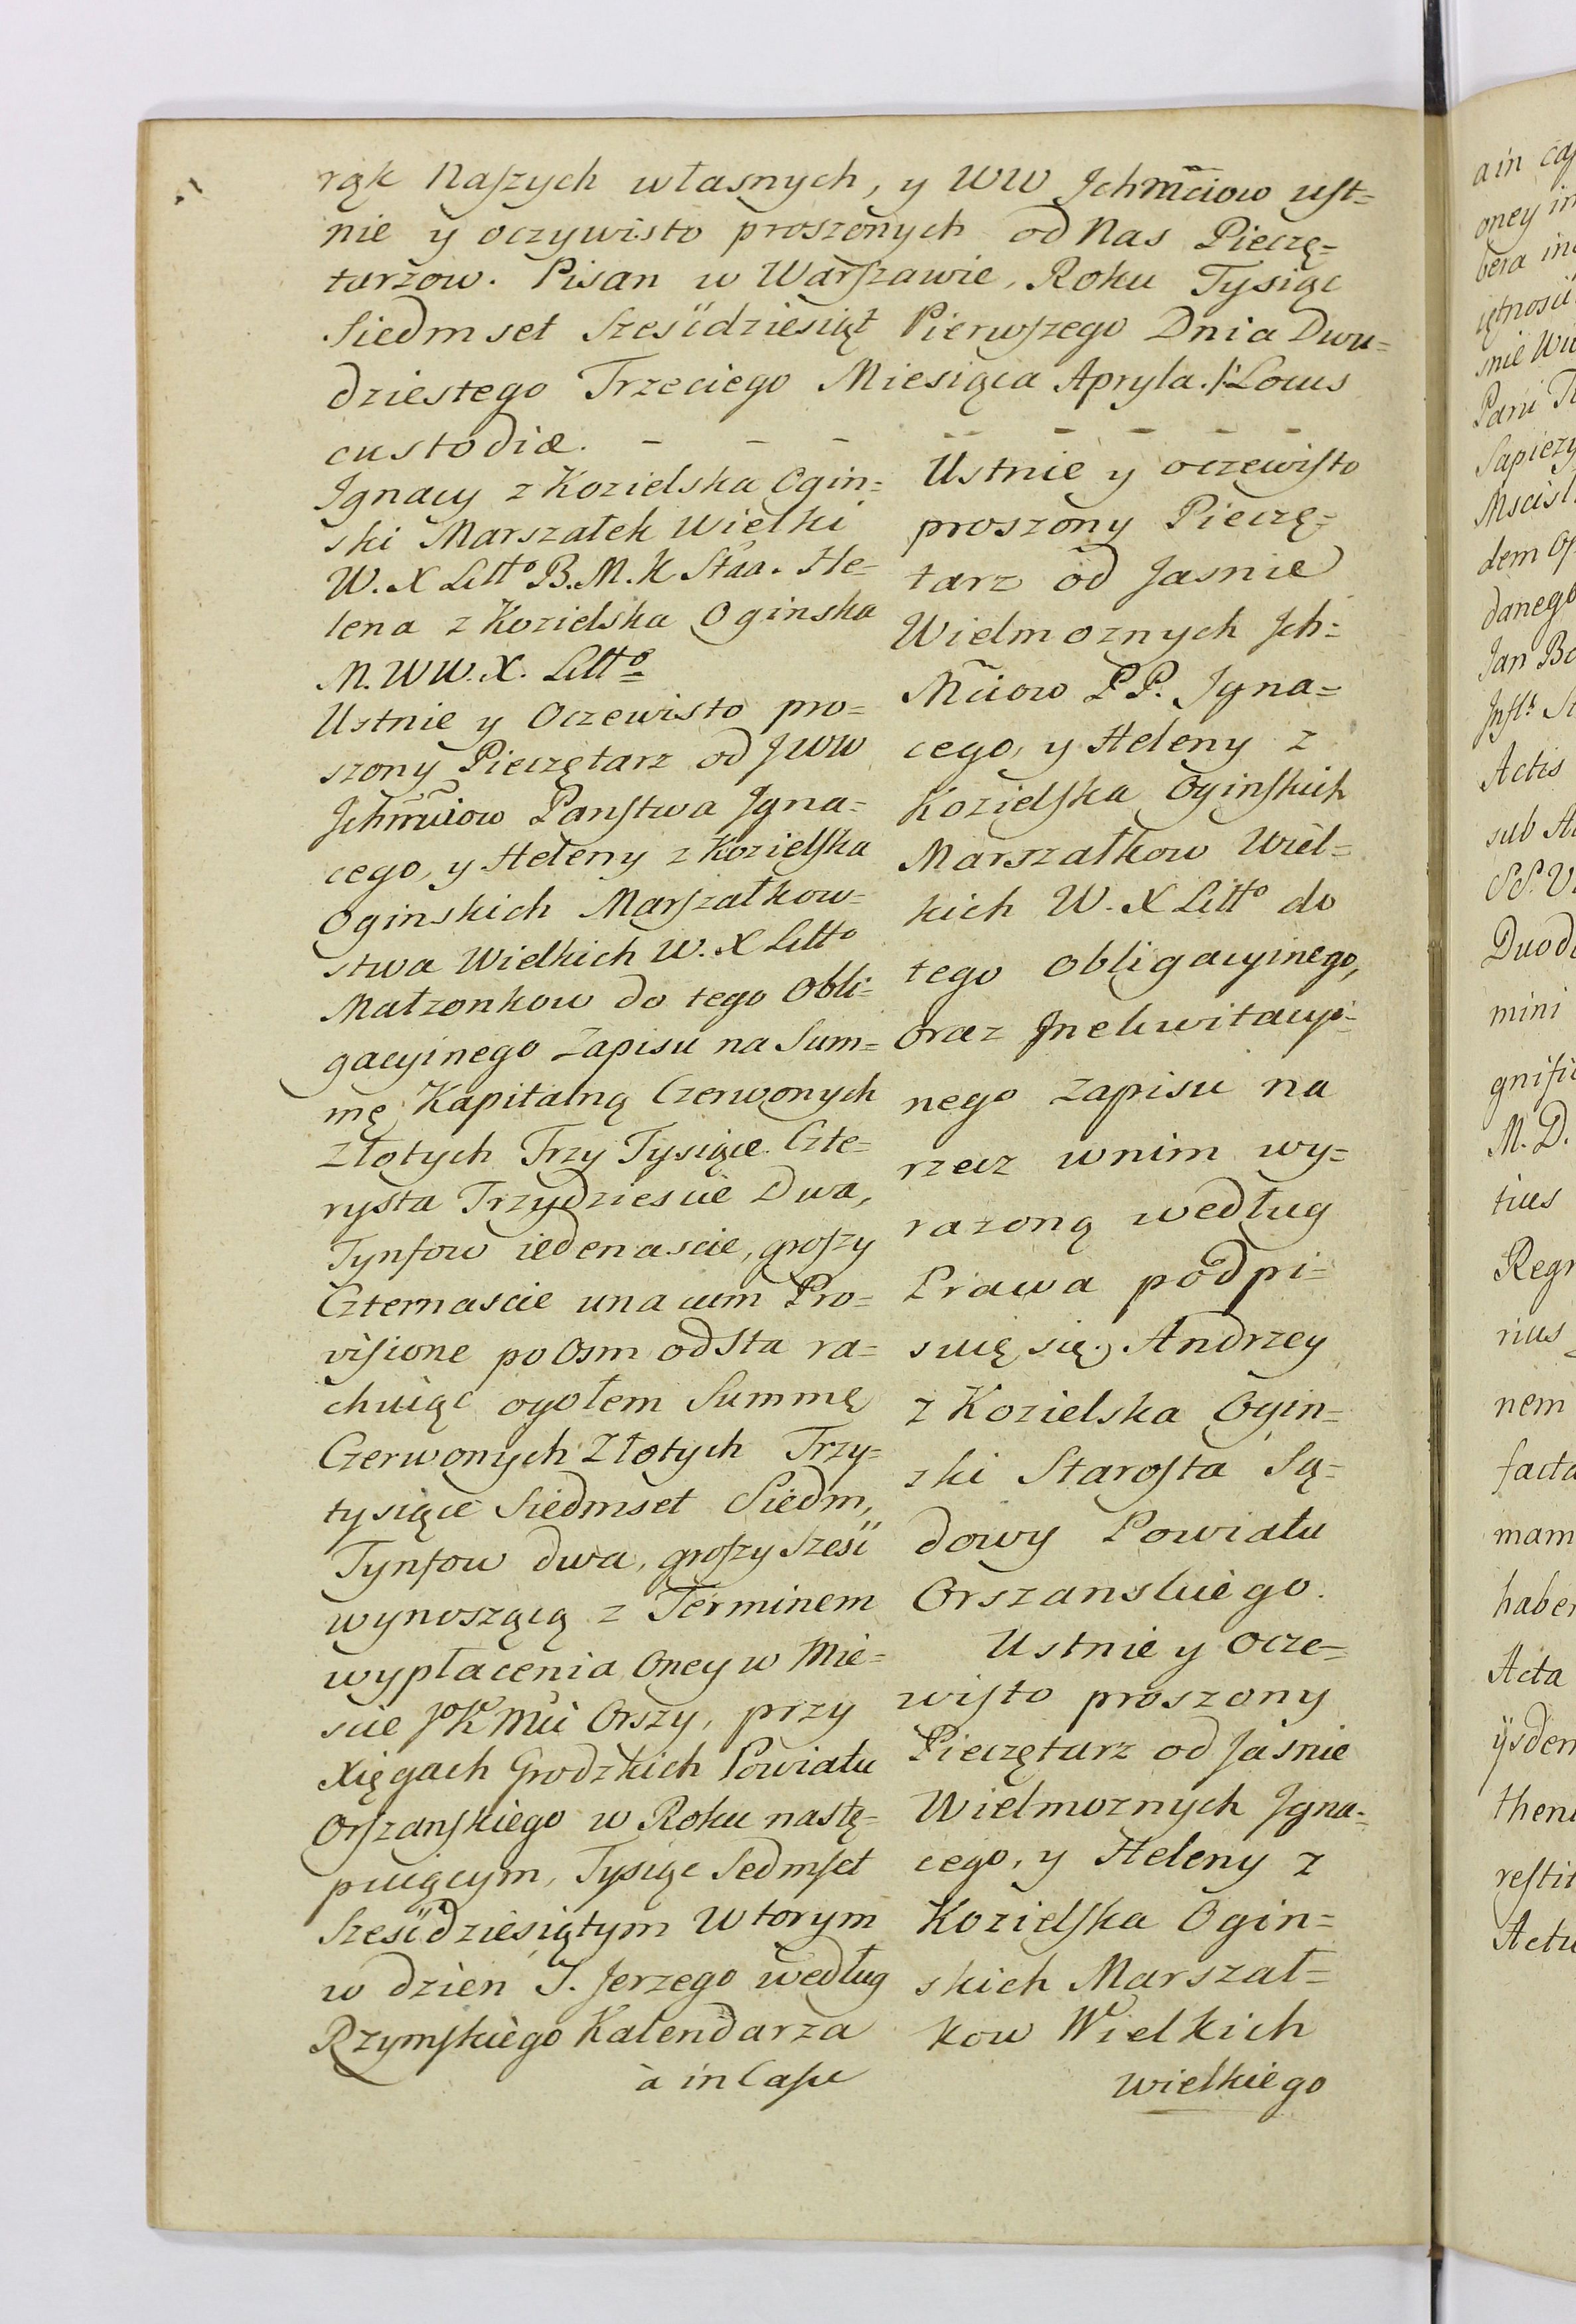 rąk Naszych własnych, y WW Jchmciow ust=
nie y oczywisto proszonych od Nas Pieczę=
tarzow. Pisan w Warszawie, Roku Tysiąc
Siedmset Sześćdziesiąt Pierwszego Dnia Dwu=
dziestego Trzeciego Miesiąca Apryla./: Locus
custodiæ. - - - - - - - -
Ignacy z Kozielska Ogin=
ski Marszałek Wielki
W. X Litto B. M. K Staa. He=
lena z Kozielska Oginska
M. W W. X. Litto
Ustnie y Oczewisto pro=
szony Pieczętarz od JWW
Jchmciow Panstwa Igna=
cego, y Heleny z Kozielska
Oginskich Marszałkow=
stwa Wielkich W. X Litto
Małzonkow do tego Obli=
gacyinego Zapisu na Sum=
mę Kapitalną Czerwonych
Złotych Trzy Tysiące Czte=
rysta Trzydziescie Dwa,
Tynfow iedenascie, groszy
Czternascie una cum Pro=
visione po Osm od Sta ra=
chuiąc ogołem Summę
Czerwonych Złotych Trzy=
tysiące Siedmset Siedm,
Tynfow dwa, groszy Sześć
wynoszącą z Terminem
wypłacenia Oney w Mie=
scie JoKmci Orszy, przy
Xięgach Grodzkich Powiatu
Orszanskiego w Roku nastę=
puiącym, Tysiąc Sedmset
Sześćdziesiątym Wtorym
w dzien S. Jerzego według
Rzymskiego Kalendarza
à in Casu
Ustnie y oczewisto
proszony Pieczę=
tarz od Jasnie
Wielmoznych Jch=
Mciow PP. Igna=
cego, y Heleny z
Kozielska Oginskich
Marszałkow Wiel=
kich W. X Litto do
tego obligacyinego,
oraz Inekwitacyi=
nego zapisu na
rzecz wnim wy=
razoną według
Prawa podpi=
suię się, Andrzey
z Kozielska Ogin=
zki Starosta Są=
dowy Powiatu
Orszanskiego.
Ustnie y Ocze=
wisto proszony
Pieczętarz od Jasnie
Wielmoznych Igna=
cego, y Heleny z
Kozielska Ogin=
skich Marszał=
kow Wielkich
wielkiego
oney in
Pani
Sapiezy
danego
Jan
Actis
sub
mini
M. D.
tius
rius
nem
facta
mam
Acta